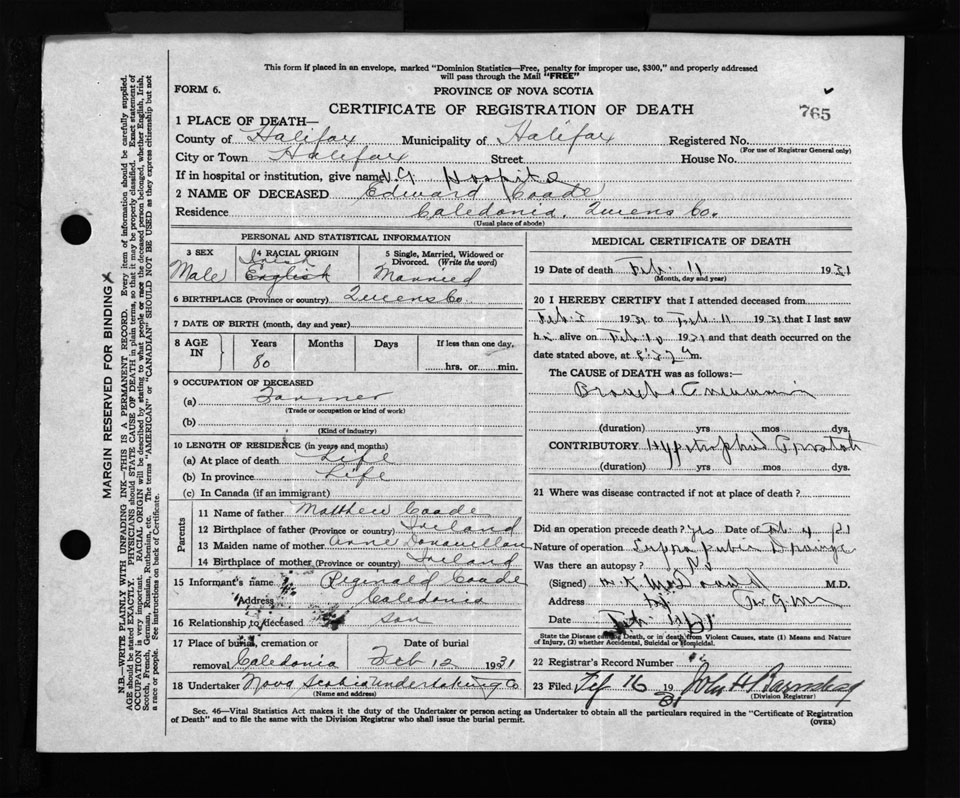 This form if placed in an envelope, marked "Dominion Statistics—Free, penalty for improper use, $300," and properly addressed
will pass through the Mail "FREE"
FORM 6.
PROVINCE OF NOVA SCOTIA
CERTIFICATE OF REGISTRATION OF DEATH
765
1 PLACE OF DEATH—
County of Halifax Municipality of Halifax Registered No.
(For use of Registrar General only)
City or Town Halifax Street House No.
If in hospital or institution, give name V.G. Hospital
2 NAME OF DECEASED Edward Coade
Residence Caledonia, Queens Co.
(Usual place of abode)
PERSONAL AND STATISTICAL INFORMATION
3 SEX
Male
4 RACIAL ORIGIN
Irish
English
5 Single, Married, Widowed or
Divorced. (Write the word)
Married
6 BIRTHPLACE (Province or country) Queens Co.
7 DATE OF BIRTH (month, day and year)
8 AGE
IN
Years Months Days If less than one day,
80
hrs. or min.
9 OCCUPATION OF DECEASED
(a) Farmer
(Trade or occupation or kind of work)
(b)
(Kind of industry)
10 LENGTH OF RESIDENCE (in years and months)
(a) At place of death Life
(b) In province Life
(c) In Canada (if an immigrant)
Parents
11 Name of father Matthew Coade
12 Birthplace of father (Province or country) Ireland
13 Maiden name of mother Anne
14 Birthplace of mother (Province or country) Ireland
15 Informant's name Reginald Coade
Address Caledonia
16 Relationship to deceased son
17 Place of burial, cremation or Date of burial
removal Caledonia Feb 12 1931
18 Undertaker Nova Scotia Undertaking Co
(Name and address)
MEDICAL CERTIFICATE OF DEATH
19 Date of death Feb. 11 1931
(Month, day and year)
20 I HEREBY CERTIFY that I attended deceased from
Feb. 1931 to Feb. 11 1931 that I last saw
h alive on Feb. 10 1931 and that death occurred on the
date stated above, at m.
The CAUSE of DEATH was as follows:—
Broncho Pneumonia
(duration) yrs mos dys.
CONTRIBUTORY Hypertrophied Prostate
(duration) yrs mos dys.
21 Where was disease contracted if not at place of death?
Did an operation precede death? Yes Date of Feb 4 31
Nature of operation Suprapubic Drainage
Was there an autopsy? No
(Signed) M.D.
Address
Date Feb.
State the Disease causing Death, or in death from Violent Causes, state (1) Means and Nature
of Injury, (2) whether Accidental, Suicidal or Homicidal.
22 Registrar's Record Number
23 Filed Feb 16 1931 John H Barnstead
(Division Registrar)
Sec. 46—Vital Statistics Act makes it the duty of the Undertaker or person acting as Undertaker to obtain all the particulars required in the "Certificate of Registration
of Death" and to file the same with the Division Registrar who shall issue the burial permit.
(OVER)
MARGIN RESERVED FOR BINDING
N.B.—WRITE PLAINLY WITH UNFADING INK—THIS IS A PERMANENT RECORD. Every item of information should be carefully supplied.
AGE should be stated EXACTLY. PHYSICIANS should STATE CAUSE OF DEATH in plain terms, so that it may be properly classified. Exact statement of
OCCUPATION is very important. RACIAL ORIGIN will be described by stating to what people or race the deceased person belonged, whether English, Irish,
Scotch, French, German, Russian, Ruthenian, etc. The terms "AMERICAN" or "CANADIAN" SHOULD NOT BE USED as they express citizenship but not
a race or people. See instructions on back of Certificate.